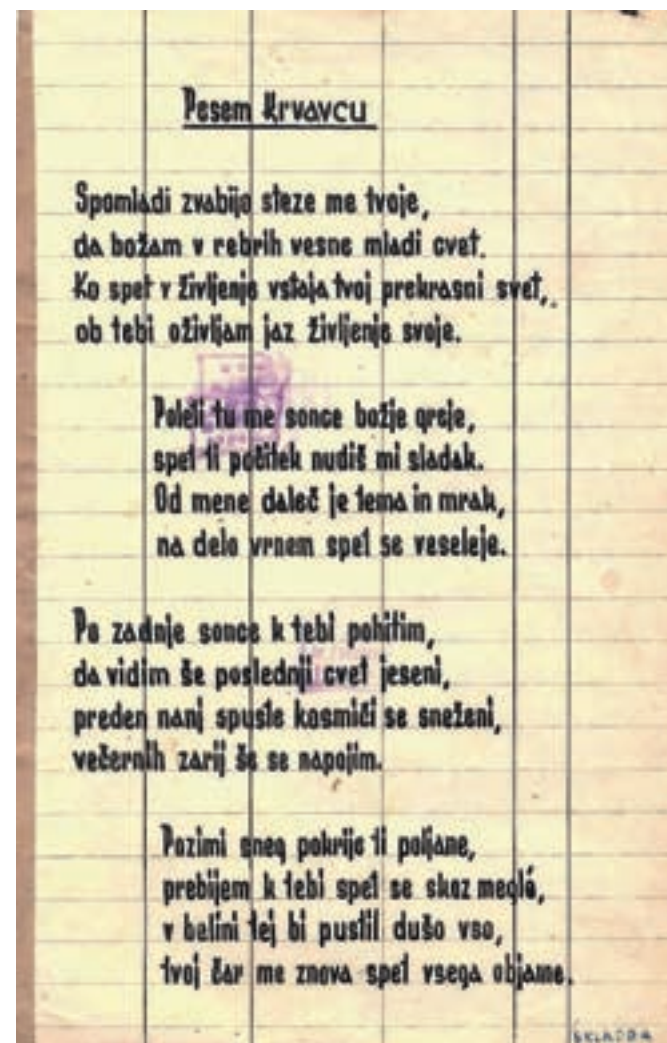 Pesem Krvavcu
Spomladi zvabijo steze me tvoje,
da božam v rebrih vesne mladi cvet.
Ko spet v življenje vstaja tvoj prekrasni svet,
ob tebi oživljam jaz življenje svoje.
Poleti tu me sonce božje greje,
spet ti počitek nudiš mi sladak.
Od mene daleč je tema in mrak,
na delo vrnem spet se veseleje.
Po zadnje sonce k tebi pohitim,
da vidim še poslednji cvet jeseni,
preden nanj spuste kosmiči se sneženi,
večernih zarij še se napojim.
Pozimi sneg pokrije ti poljane,
prebijem k tebi spet se skoz megló,
v belini tej bi pustil dušo vso,
tvoj čar me znova spet vsega objame.